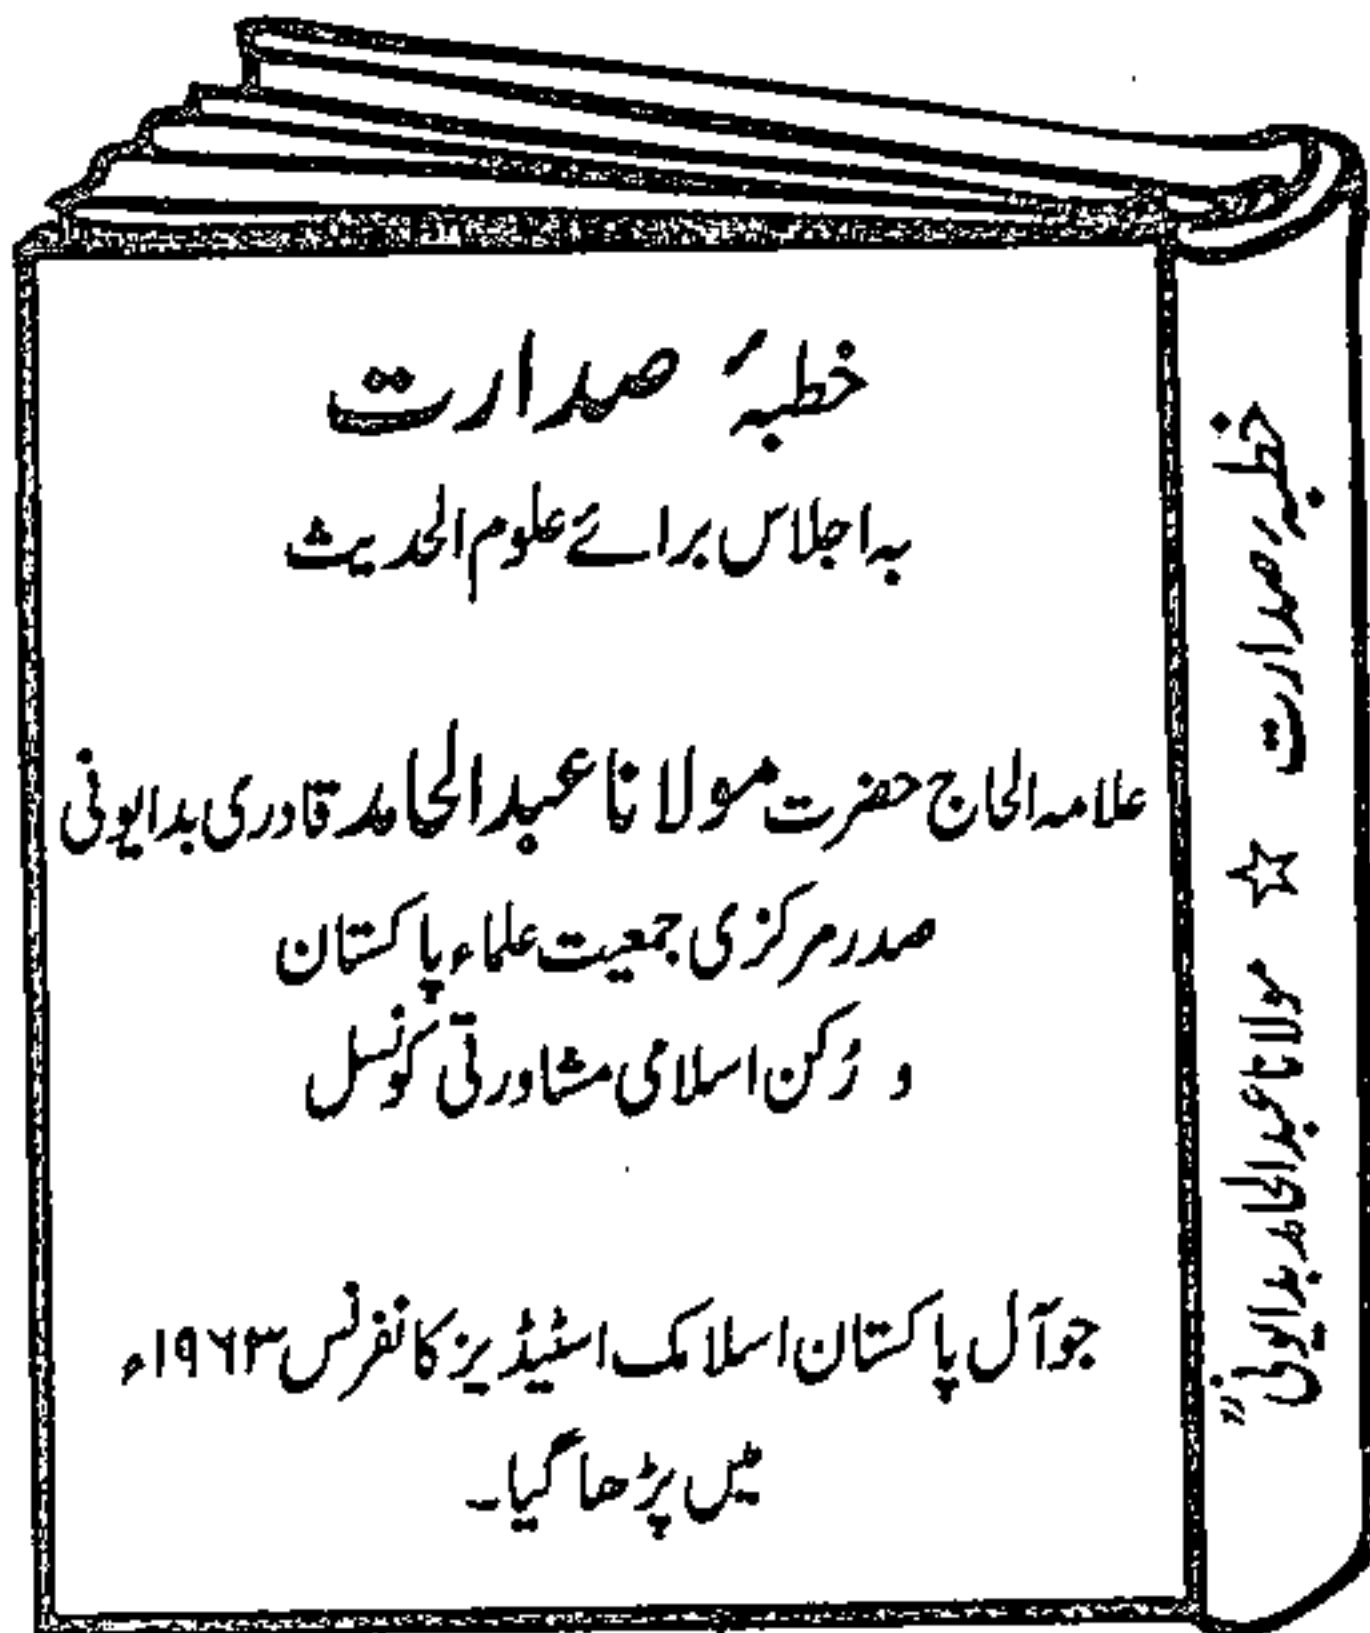 خطبہٴ صدارت
بہ اجلاس برائے علوم الحدیث
علامہ الحاج حضرت مولانا عبدالحامد قادری بدایونی
صدر مرکزی جمعیت علماء پاکستان
و رُکن اسلامی مشاورتی کونسل
جو آل پاکستان اسلامک اسٹیڈیز کانفرنس ۱۹۶۳ء
میں پڑھا گیا۔
خطبہٴ صدارت ☆ مولانا عبدالحامد بدایونی